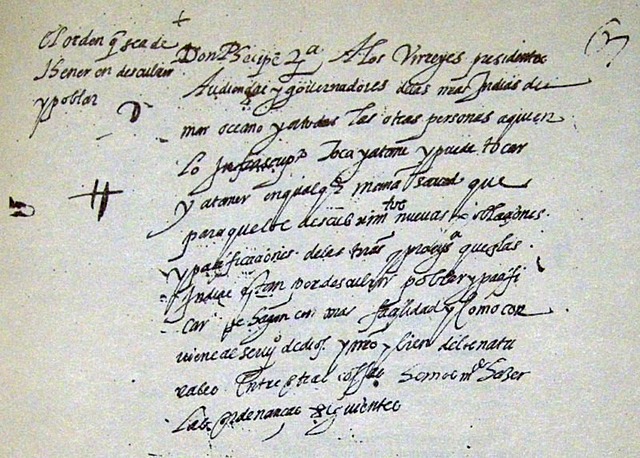 El orden q̃ se a de
thener en descubrir
y poblar
Don Phelipe 2ª A los Virreyes presidentes
Audiencias y governadores de las nras Indias del
mar oceano y a todas las otras personas a quien
lo infrascripto toca y atañe y puede tocar
y atañer en qualqr manera saved que
para que los descubrimitos nuevas poblaçiones
y pacificaciones de las trras y provas que en las
Indias estan por descubrir poblar y paçifi
car se hagan con mas façilidad y como con
viene al servio de dios y nro y bien de los natu
rales entre otras cossas hemos mdo hazer
las ordenanças siguientes